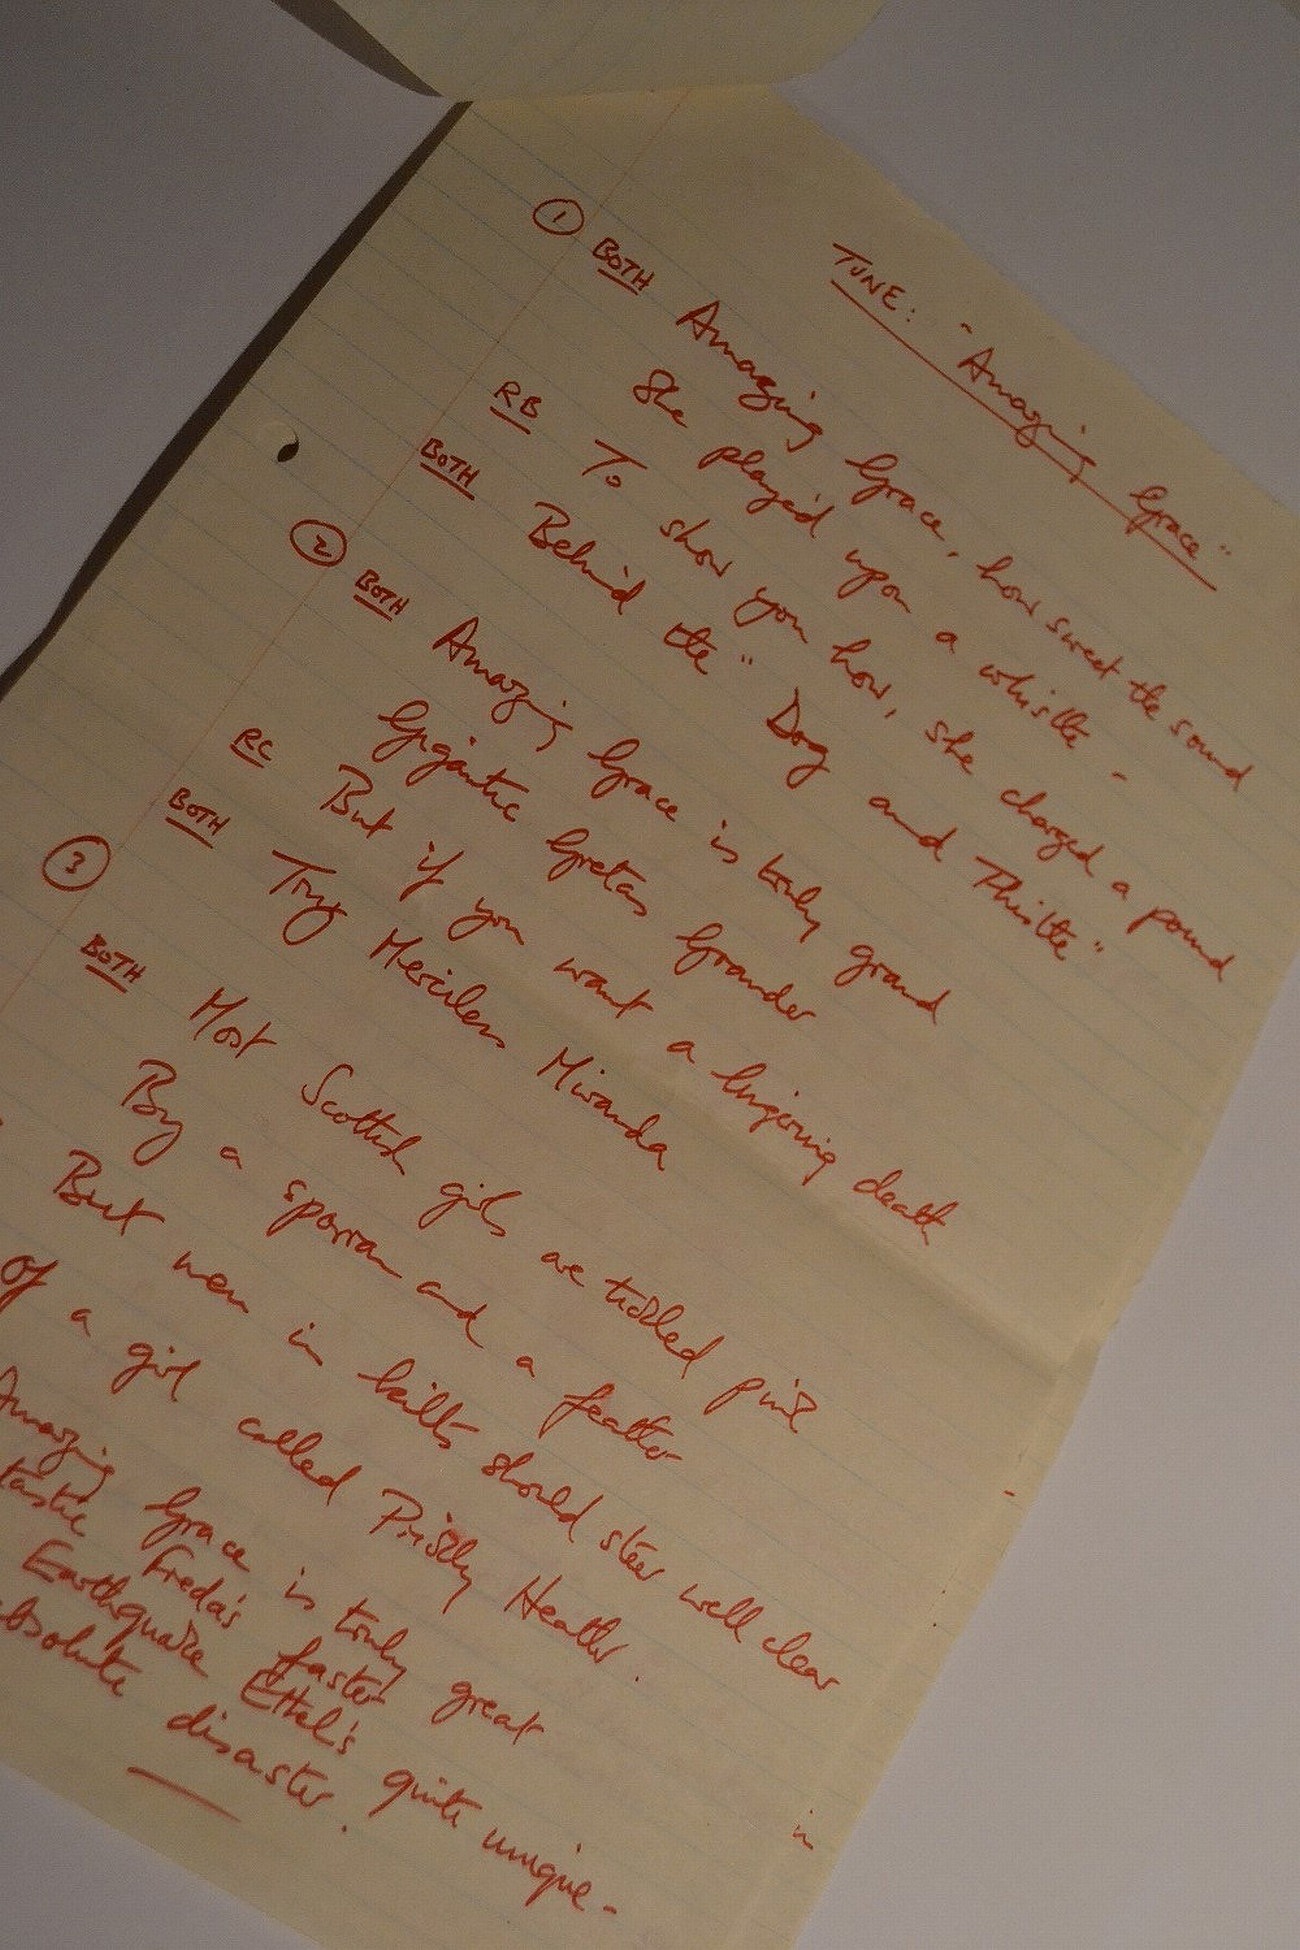 TUNE: "Amazing Grace"
① BOTH Amazing Grace, how sweet the sound
She played upon a whistle -
RB To show you how, she charged a pound
BOTH Behind the "Dog and Thistle"
② BOTH Amazing Grace is truly grand
Gigantic Gretas Grander
RC But if you want a lingering death
BOTH Try Merciless Miranda
③ BOTH Most Scottish girls are tickled pink
By a sporran and a feather
But men in kilts should steer well clear
Of a girl called Prickly Heather.
Amazing Grace is truly great
tastic Freda's faster
Earthquake Ethel's quite unique -
bsolute disaster.
in